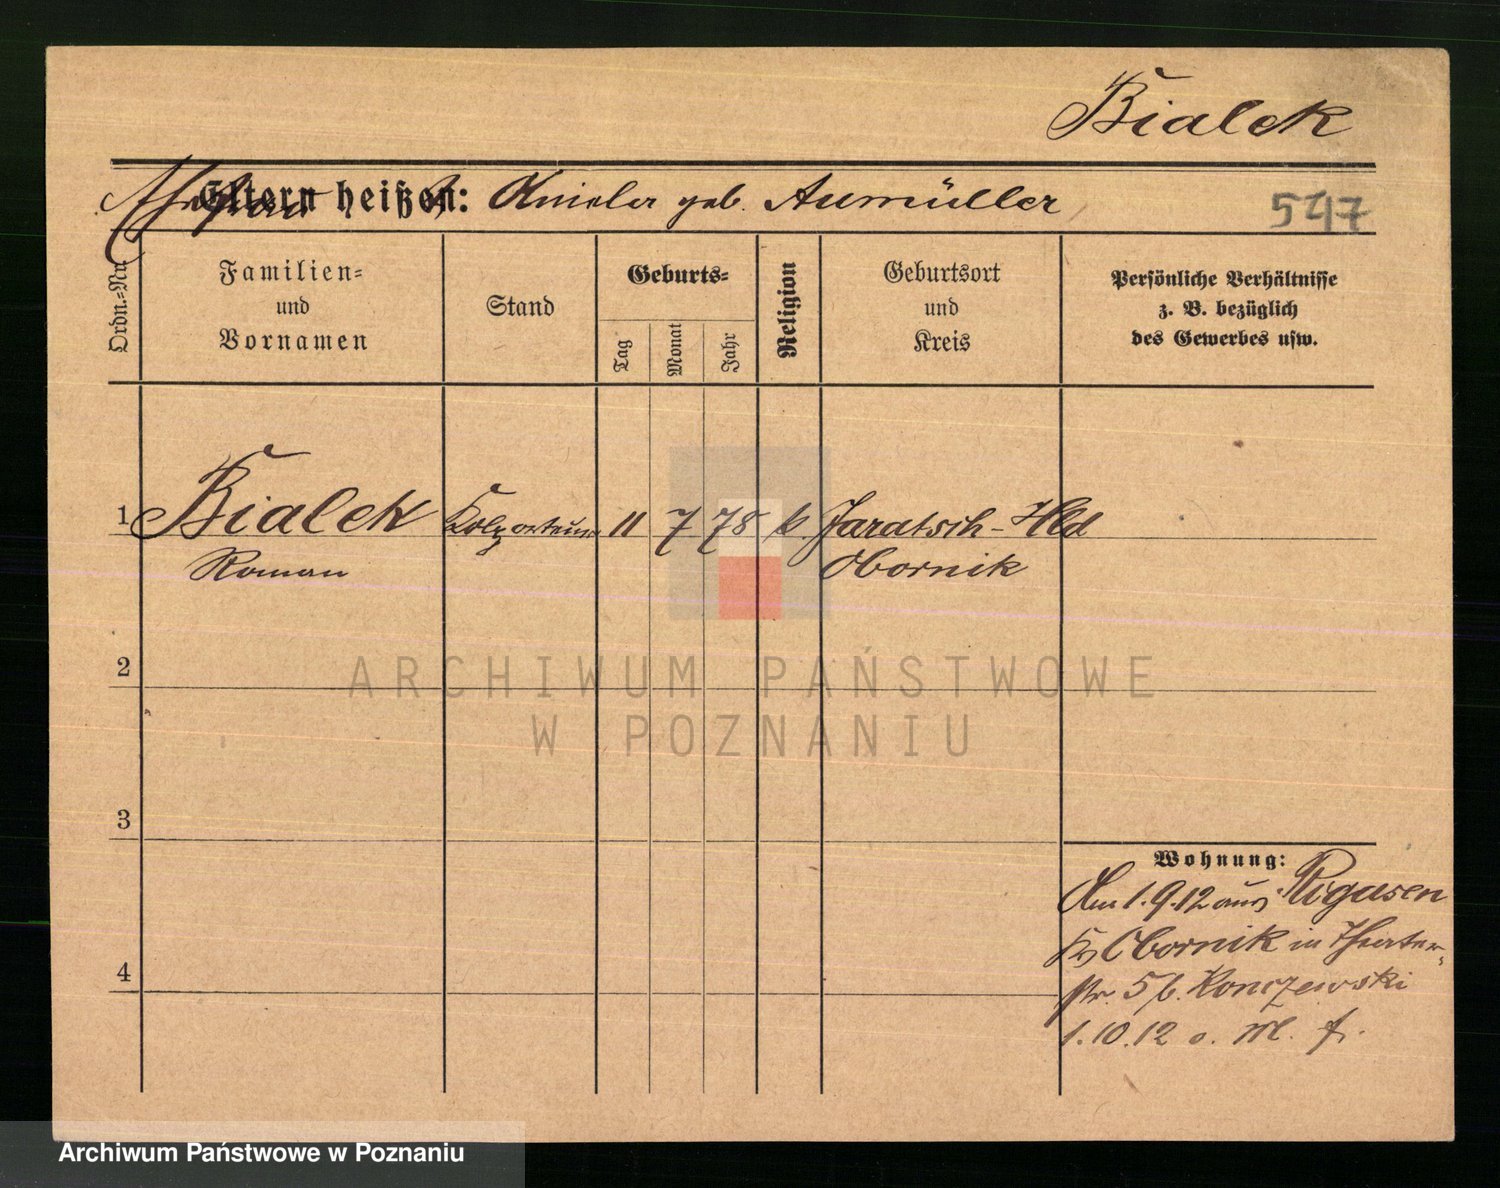 Bialek
Eltern heißen: Knieler geb. Aumüller
547
Ordn.=Nr.
Familien=
und
Vornamen
Stand
Geburts=
Tag
Monat
Jahr
Religion
Geburtsort
und
Kreis
Persönliche Verhältnisse
z. B. bezüglich
des Gewerbes usw.
1 Bialek Kolporteur 11 7 78 k. Jaratsch-Hld
Roman Obornik
2
3
4
Wohnung:
Am 1.9.12 aus Rogasen
Kr Obornik in Theater-
str. 5 b. Konczewski
1.10.12 o. M. f.
ARCHIWUM PAŃSTWOWE
W POZNANIU
Archiwum Państwowe w Poznaniu